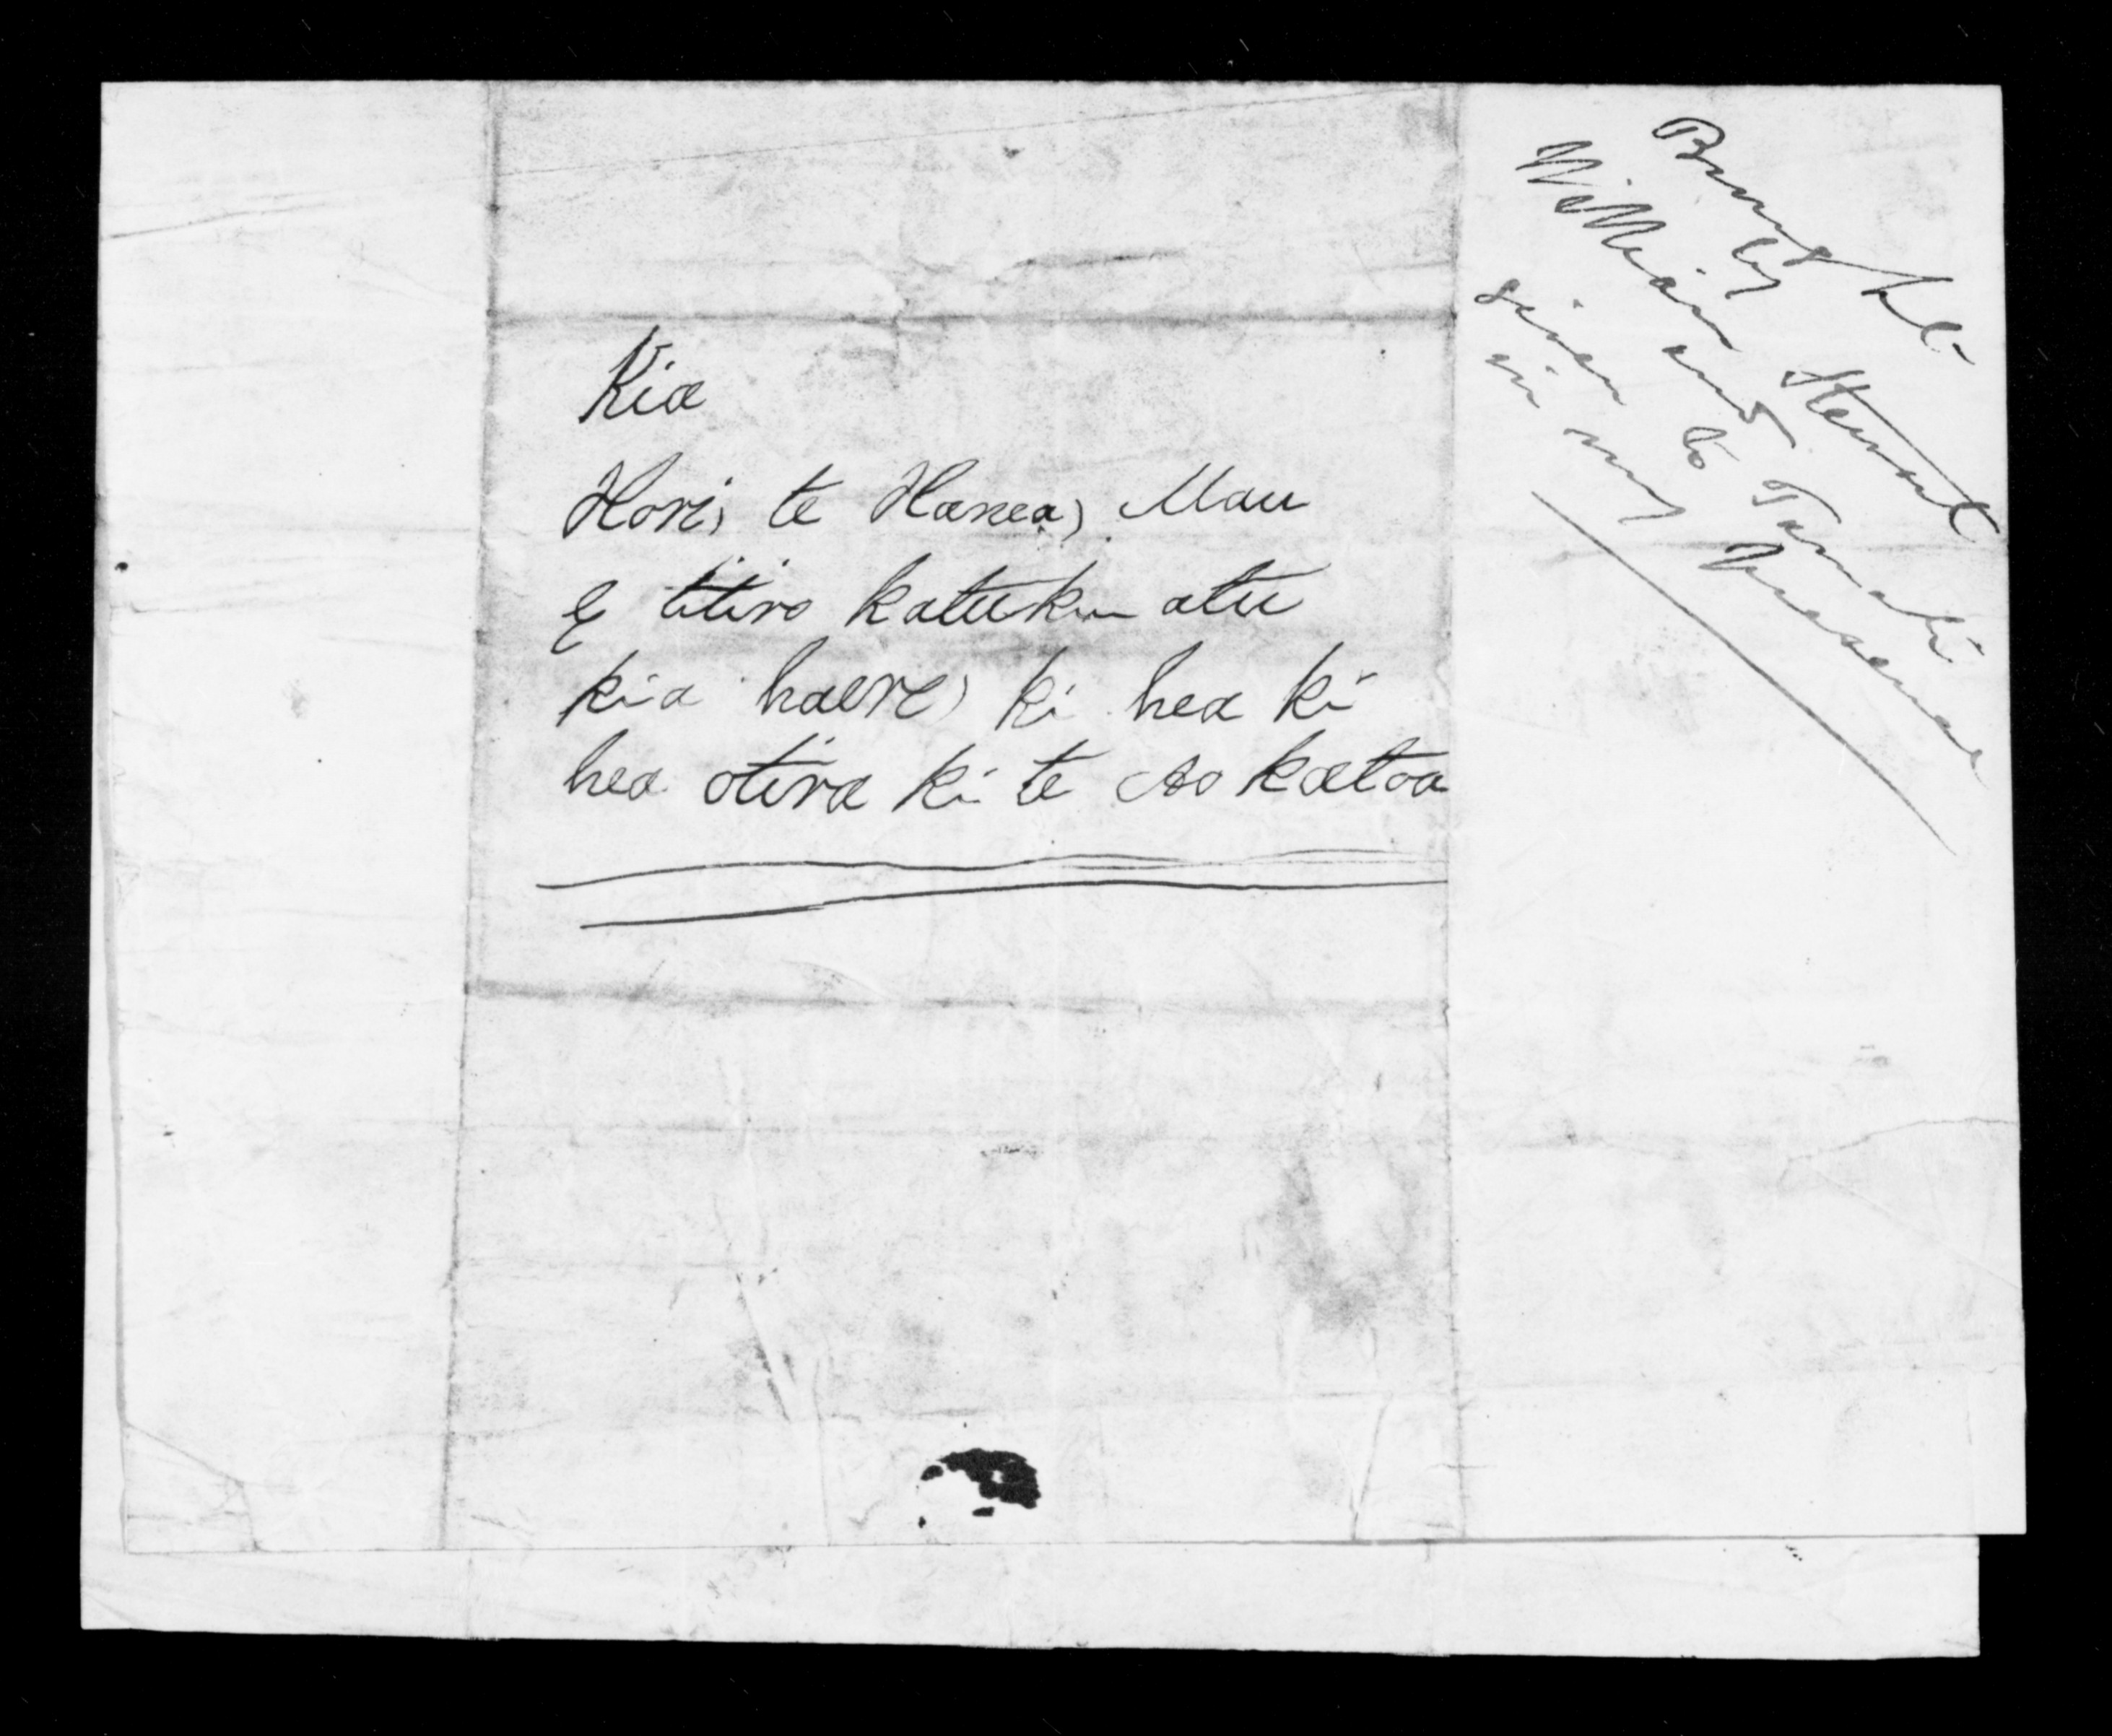 Kia
Hori, te Hanea, Mau
E titiro katuku atu
kia haere, ki hea ki
hea otira ki te Ao katoa
Brought
by Stewart
William and
given to Tamati
in my